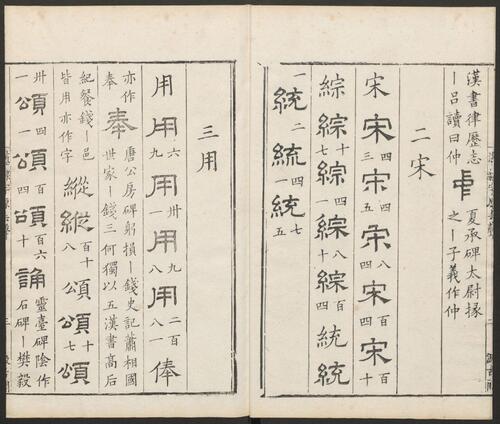 漢書律歷志丨呂讀曰仲 中 夏承碑太尉掾之丨子義作仲
二宋
宋 宋 四三 宋 四五 宋 八四 宋 百四 宋 百十
綜 綜 十七 綜 四一 綜 八十 綜 百四 統 統
一 統 二 統 四一 統 七五
三用
用 用 六九 用 卅一 用 九八 用 二百八一 俸
亦作奉 奉 唐公房碑躬損丨錢史記蕭相國世家丨錢三何獨以五漢書高后
紀餐錢丨邑皆用亦作字 縱 縱 百十八 頌 頌 十七 頌
卅一 頌 四一 頌 百四 頌 百六十 誦 靈臺碑陰作石碑丨樊毅